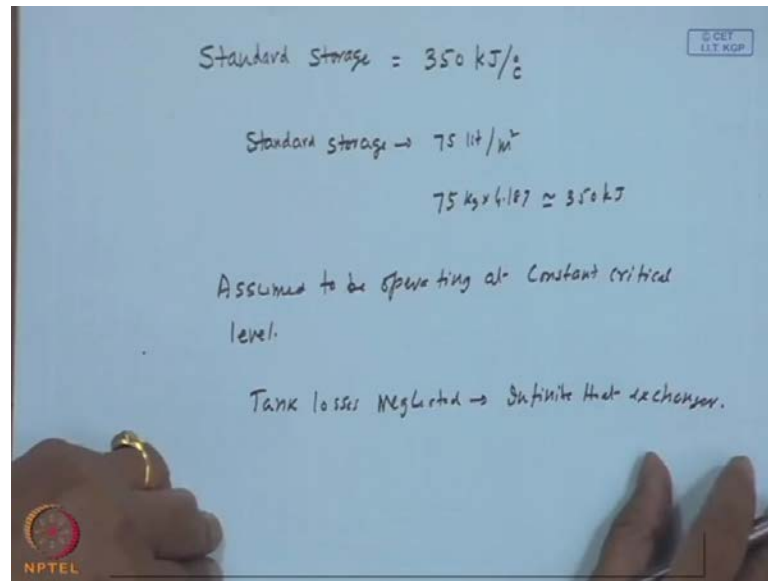 © CET
I.I.T. KGP
Standard Storage = 350 kJ/°C
Standard storage → 75 lit/m²
75 kg x 4.187 ≃ 350 kJ
Assumed to be operating at Constant critical
level.
Tank losses Neglected → Infinite Heat exchanger.
NPTEL